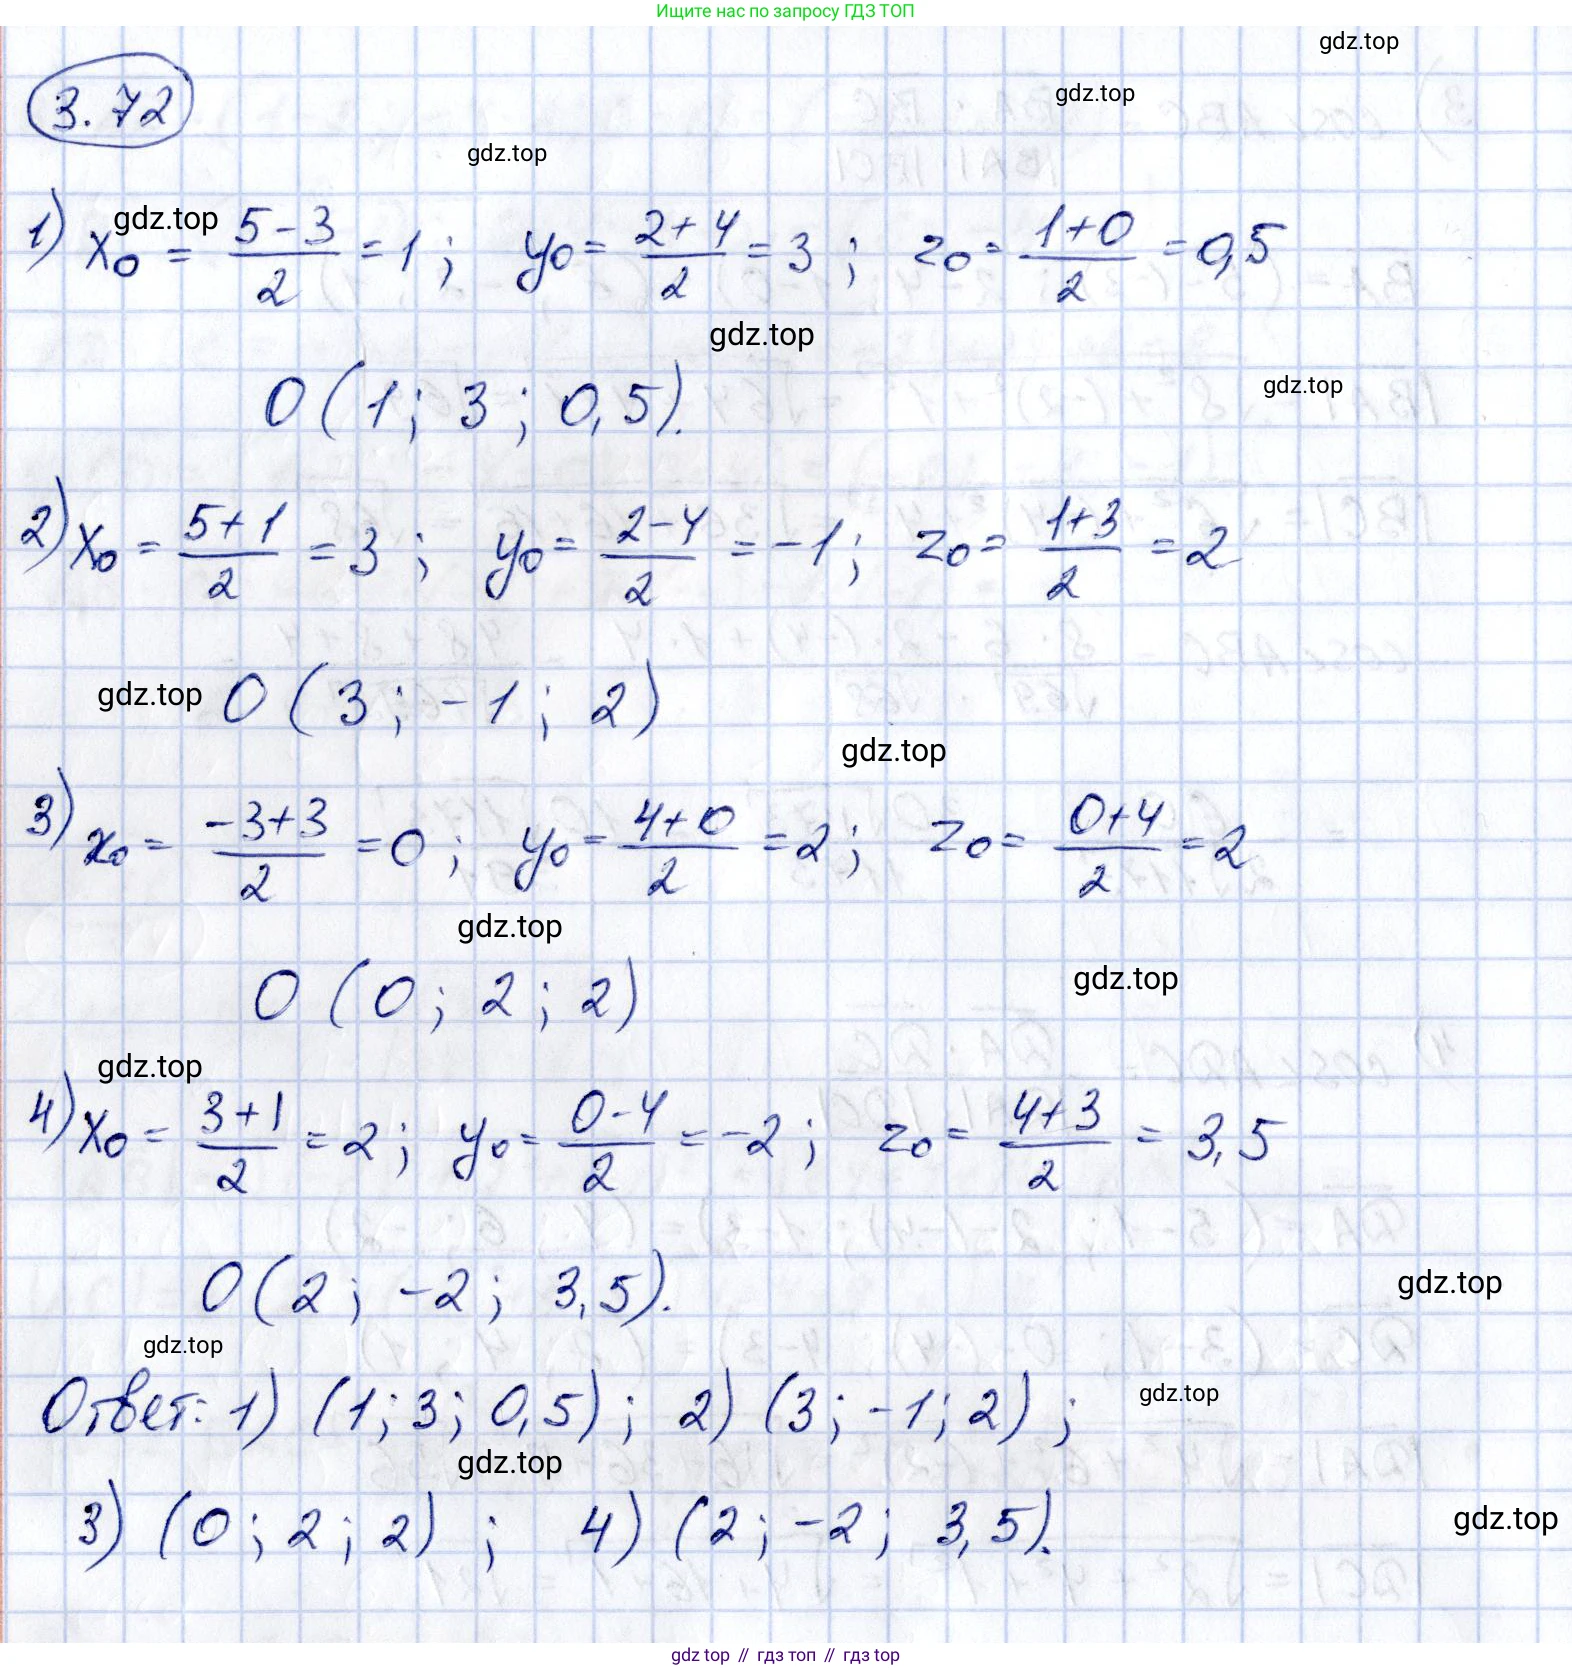 Ищите нас по запросу ГДЗ ТОП
gdz.top
gdz.top
3.72
gdz.top
1) x₀ = (5-3)/2 = 1 ; y₀ = (2+4)/2 = 3 ; z₀ = (1+0)/2 = 0,5
gdz.top
gdz.top
gdz.top
O (1 ; 3 ; 0,5).
2) x₀ = (5+1)/2 = 3 ; y₀ = (2-4)/2 = -1 ; z₀ = (1+3)/2 = 2
gdz.top O (3 ; -1 ; 2)
gdz.top
3) x₀ = (-3+3)/2 = 0 ; y₀ = (4+0)/2 = 2 ; z₀ = (0+4)/2 = 2
gdz.top
gdz.top
O (0 ; 2 ; 2)
gdz.top
4) x₀ = (3+1)/2 = 2 ; y₀ = (0-4)/2 = -2 ; z₀ = (4+3)/2 = 3,5
O (2 ; -2 ; 3,5).
gdz.top
gdz.top
Ответ: 1) (1 ; 3 ; 0,5) ; 2) (3 ; -1 ; 2) ;
gdz.top
gdz.top
3) (0 ; 2 ; 2) ; 4) (2 ; -2 ; 3,5).
gdz.top
gdz.top // гдз топ // гдз.top